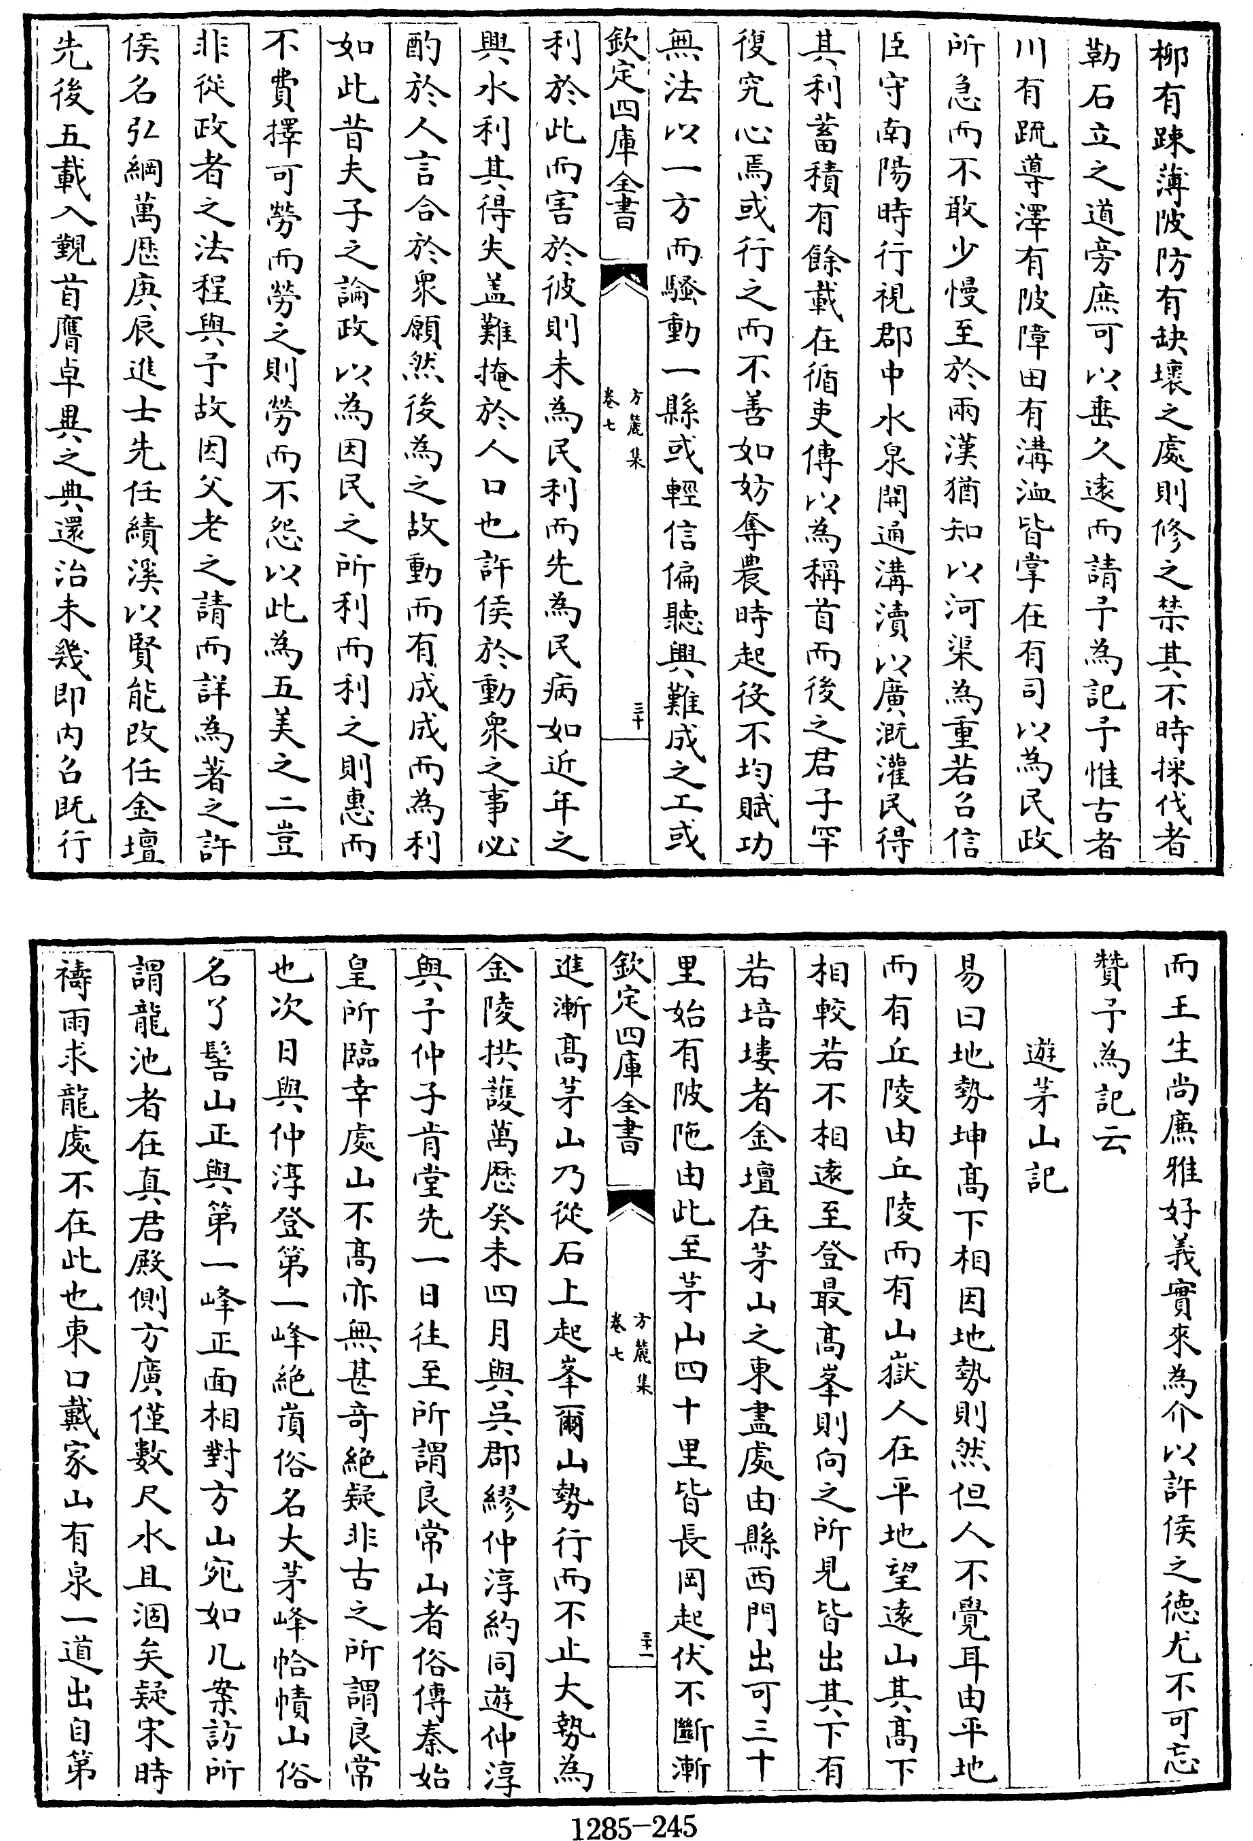 柳有疎薄陂防有缺壞之處則修之禁其不時採伐者
勒石立之道旁庶可以垂久遠而請予為記予惟古者
川有疏導澤有陂障田有溝洫皆掌在有司以為民政
所急而不敢少慢至於兩漢猶知以河渠為重若召信
臣守南陽時行視郡中水泉開通溝瀆以廣溉灌民得
其利蓄積有餘載在循吏傳以為稱首而後之君子罕
復究心焉或行之而不善如妨奪農時起役不均賦功
無法以一方而騷動一縣或輕信偏聽興難成之工或
欽定四庫全書
方麓集
卷七
三十
利於此而害於彼則未為民利而先為民病如近年之
興水利其得失盖難掩於人口也許侯於動衆之事必
酌於人言合於衆願然後為之故動而有成成而為利
如此昔夫子之論政以為因民之所利而利之則惠而
不費擇可勞而勞之則勞而不怨以此為五美之二豈
非從政者之法程與予故因父老之請而詳為著之許
侯名弘綱萬歷庚辰進士先任績溪以賢能改任金壇
先後五載入覲首膺卓異之典還治未幾即内召既行
而王生尚亷雅好義實來為介以許侯之徳尤不可忘
贊予為記云
遊茅山記
易曰地勢坤髙下相因地勢則然但人不覺耳由平地
而有丘陵由丘陵而有山嶽人在平地望遠山其髙下
相較若不相遠至登最髙峯則向之所見皆出其下有
若培塿者金壇在茅山之東盡處由縣西門出可三十
里始有陂陁由此至茅山四十里皆長岡起伏不斷漸
欽定四庫全書
方麓集
卷七
三十一
進漸髙茅山乃從石上起峯爾山勢行而不止大勢為
金陵拱護萬歷癸未四月與吳郡繆仲淳約同遊仲淳
與予仲子肯堂先一日往至所謂良常山者俗傳秦始
皇所臨幸處山不髙亦無甚竒絶疑非古之所謂良常
也次日與仲淳登第一峰絶頂俗名大茅峰恰幘山俗
名丫髻山正與第一峰正面相對方山宛如几案訪所
謂龍池者在真君殿側方廣僅數尺水且涸矣疑宋時
禱雨求龍處不在此也東口戴家山有泉一道出自第
1285-245